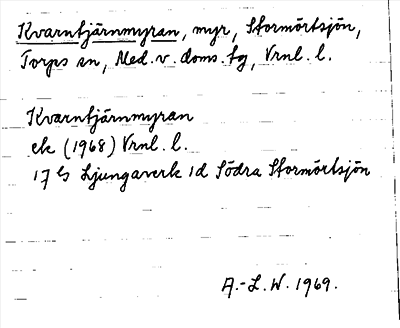 Kvarntjärnmyran, myr, Stormörtsjön,
Torps sn, Med. v. doms. tg, Vrnl. l.
Kvarntjärnmyran
ek (1968) Vrnl. l.
17 Es Ljungaverk 1d Södra Stormörtsjön
A.-L. W. 1969.